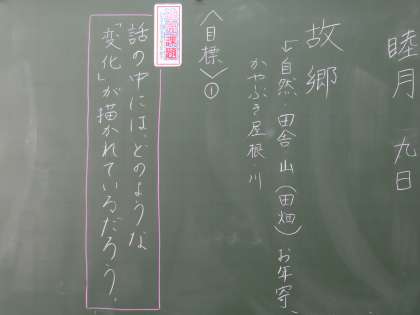 睦月 九日
故郷
↳自然・田舎・山(田畑) お年寄
かやぶき屋根・川
〈目標〉①
課題
話の中には、どのような
「変化」が描かれているだろう。